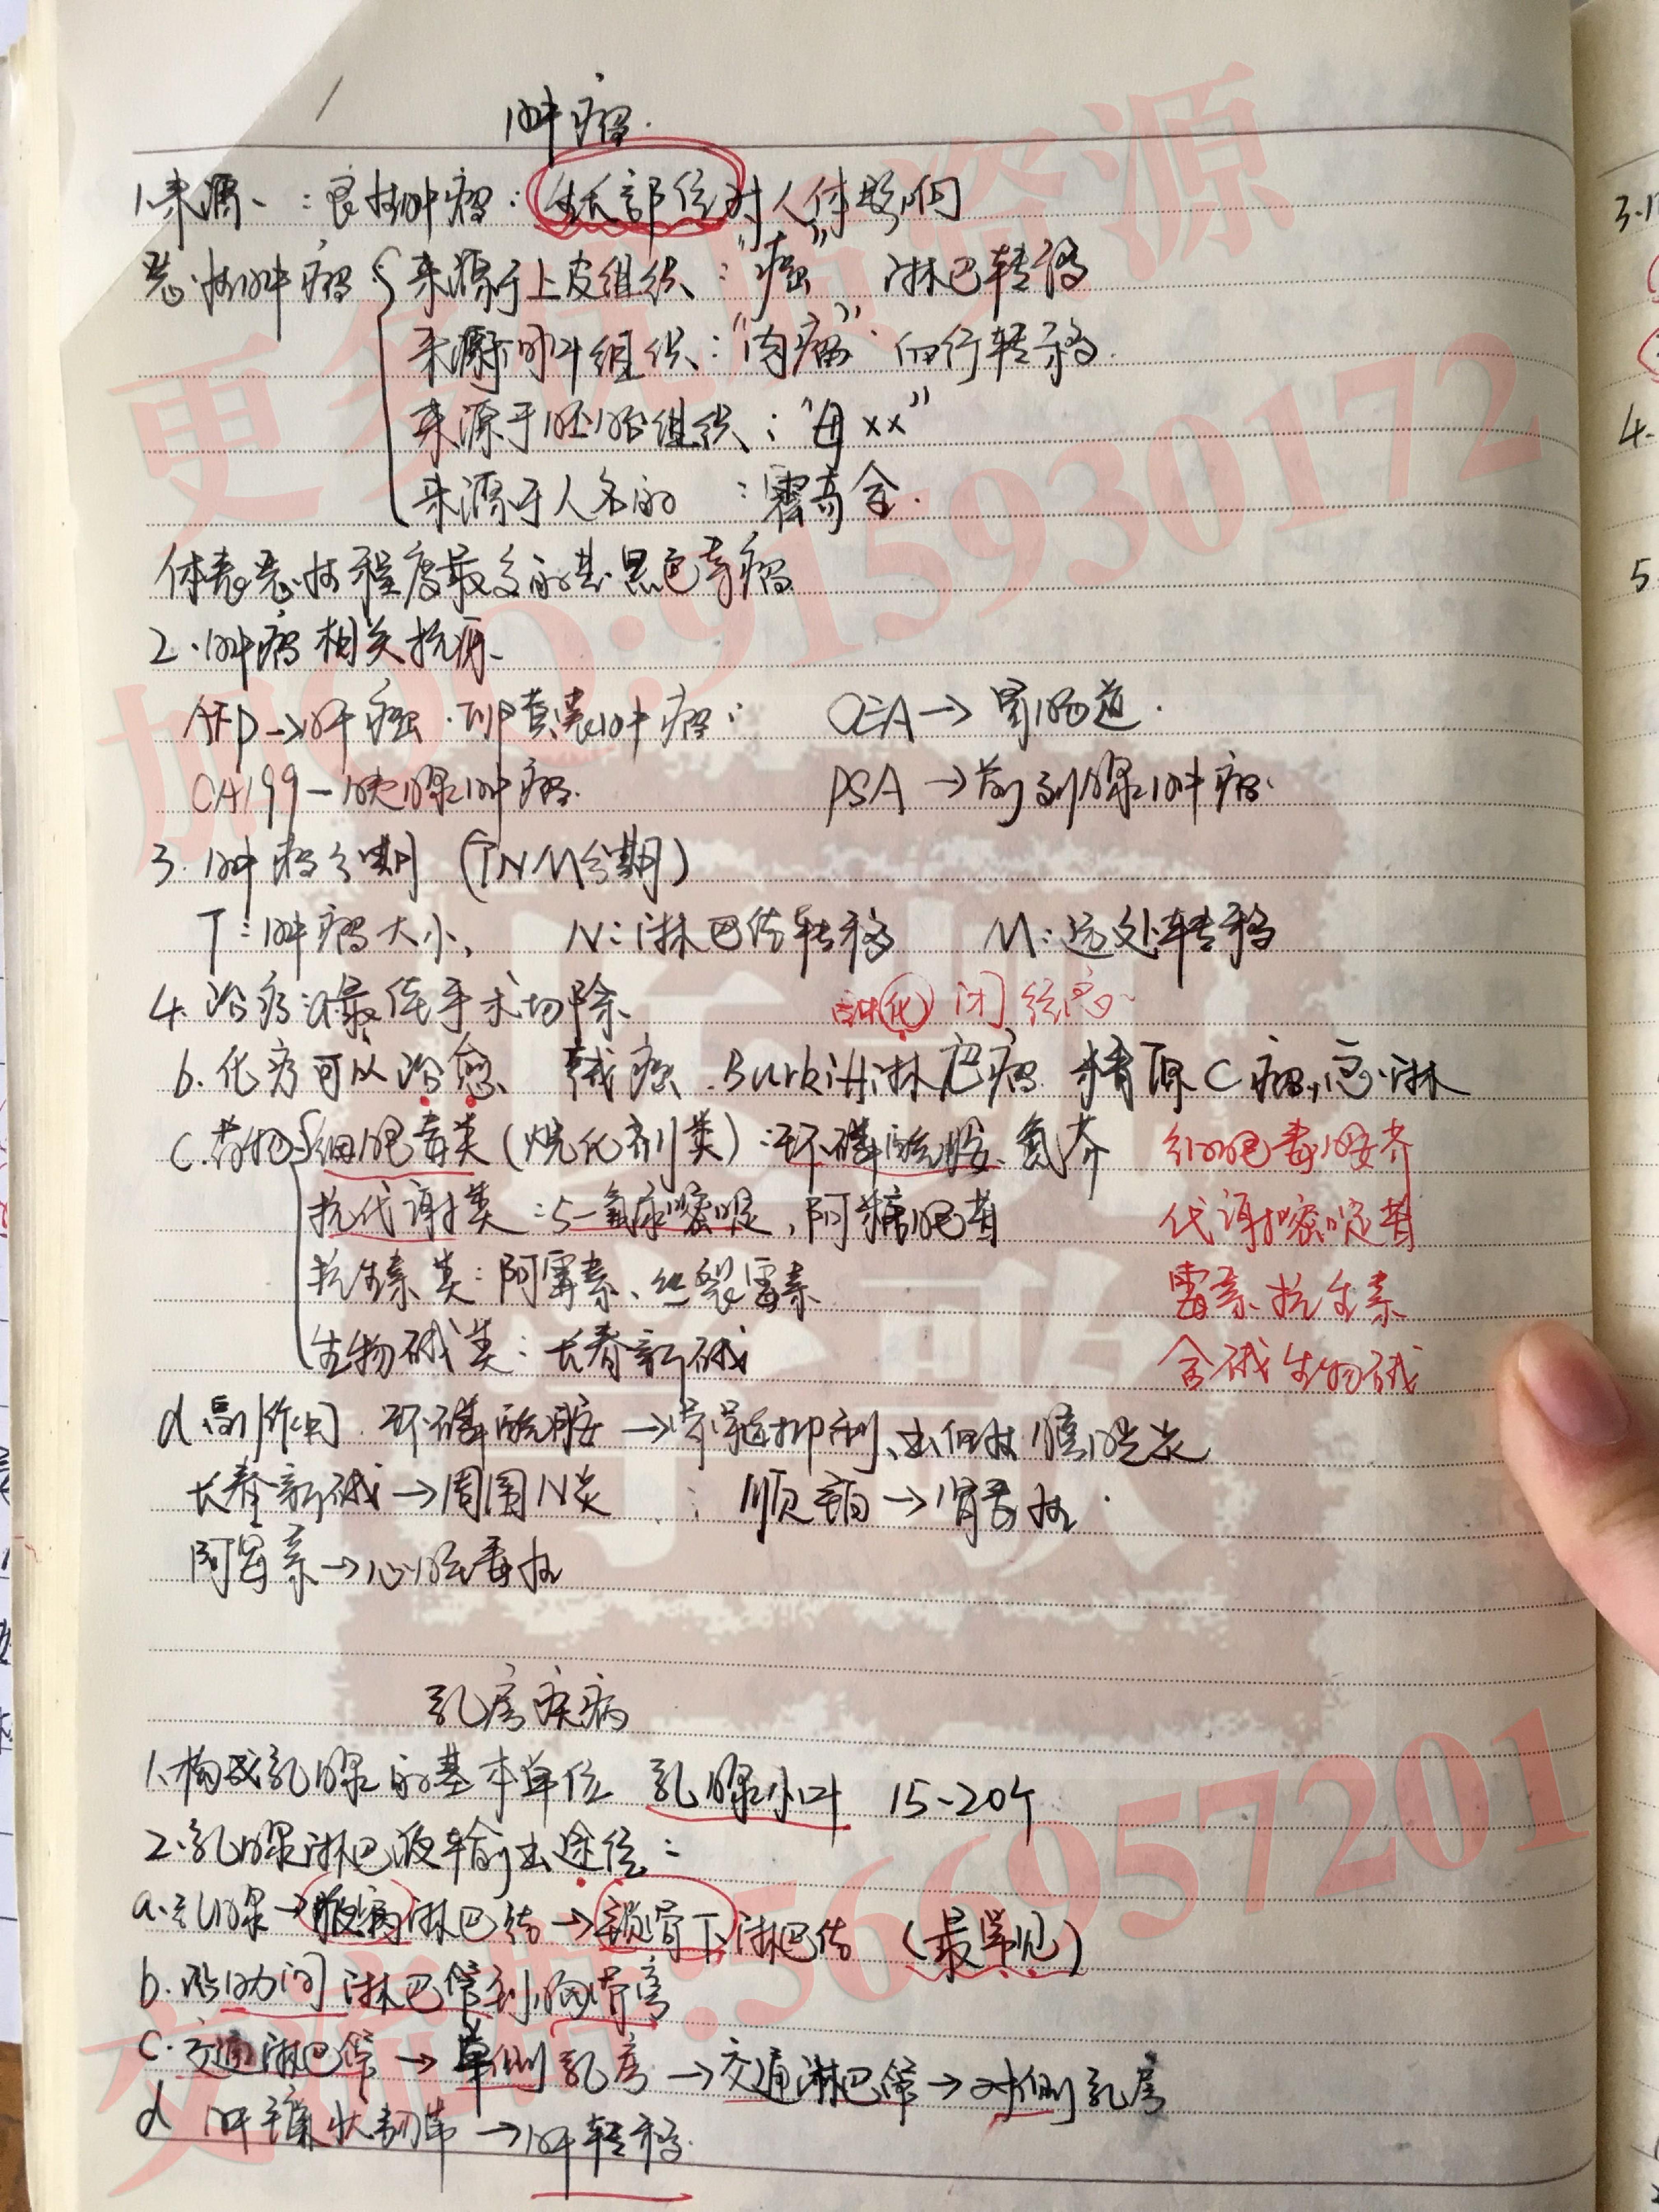 肿瘤.
1.来源、:良性肿瘤:生长部位对人体影响
恶性肿瘤 来源于上皮组织:"癌" 淋巴转移
来源于间叶组织:"肉瘤" 血行转移.
来源于胚胎组织:"母××"
来源于人名的:霍奇金.
体表恶性程度最多的是:黑色素瘤
2.肿瘤相关抗原
AFP→肝癌.卵黄囊肿瘤; CEA→胃肠道.
CA199—胰腺肿瘤. PSA→前列腺肿瘤.
3.肿瘤分期(TNM分期)
T:肿瘤大小, N:淋巴结转移 M:远处转移
4.治疗:a最佳手术切除
化 闭经
b.化疗可以治愈 绒癌.Burkitt淋巴瘤 精原C瘤,急淋
c.药物 细胞毒类(烷化剂类):环磷酰胺、氮芥 细胞毒胺芥
抗代谢类:5-氟尿嘧啶,阿糖胞苷 代谢嘧啶苷
抗生素类:阿霉素、丝裂霉素 霉素抗生素
生物碱类:长春新碱 含碱生物碱
d.副作用.环磷酰胺→骨髓抑制、出血性膀胱炎
长春新碱→周围N炎 ; 顺铂→肾毒性.
阿霉素→心脏毒性
乳房疾病
1.构成乳腺的基本单位 乳腺小叶 15-20个
2.乳腺淋巴液输出途径:
a.乳腺→腋窝淋巴结→锁骨下淋巴结(最常见)
b.沿肋间淋巴管到胸骨旁
c.交通淋巴管→单侧乳房→交通淋巴管→对侧乳房
d 肝镰状韧带→肝转移.
更多优质资源
加QQ:915930172
交流群:566957201
3.
4.
5